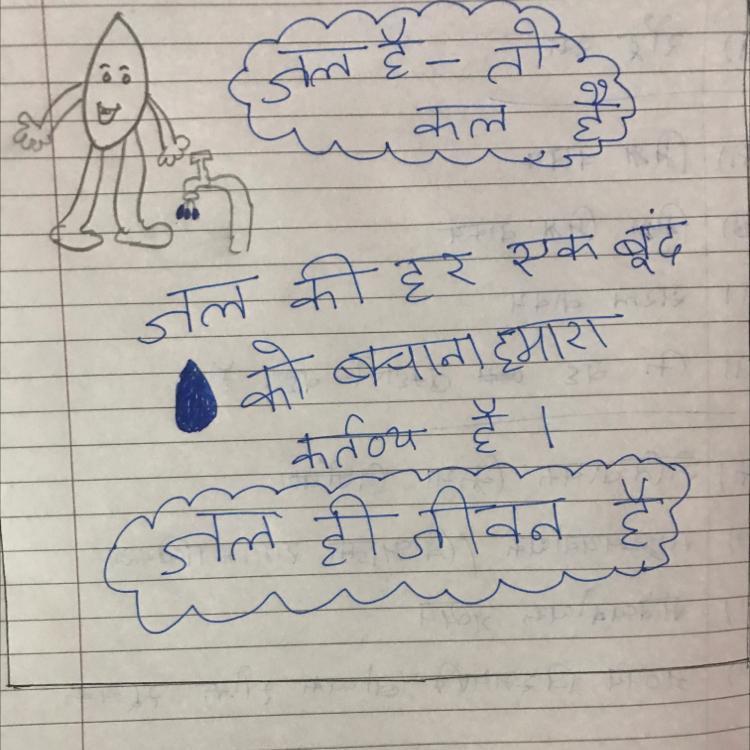 जल है - तो
कल है
जल की हर एक बूंद
को बचाना हमारा
कर्तव्य है ।
जल ही जीवन है